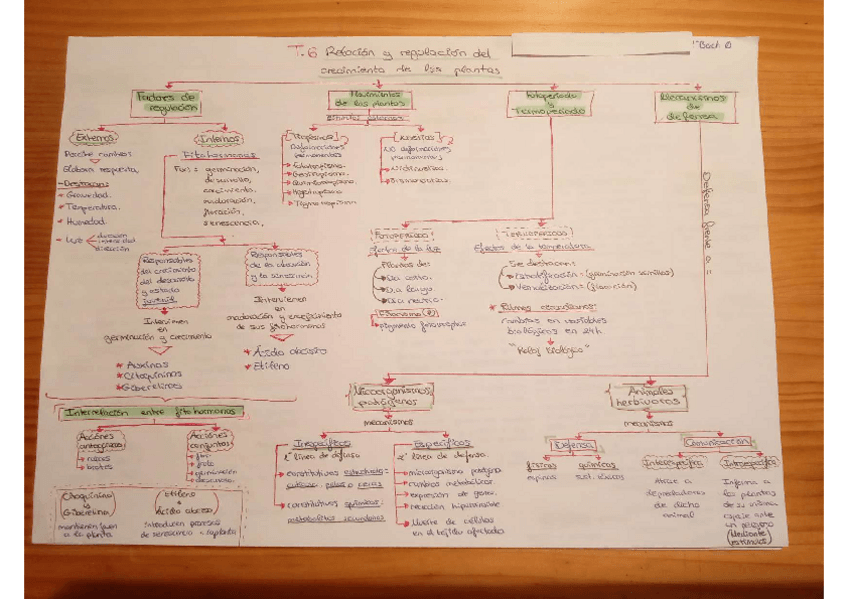 T.6 Relación y regulación del
crecimiento de las plantas
1º Bach B
Factores de
regulación
Externos
Percibe cambios
Elaboran respuesta
- Destacan:
• Gravedad.
• Temperatura.
• Humedad.
• Luz
duración
intensidad
dirección
Internos
Fitohormonas
Fun: = germinación,
desarrollo,
crecimiento,
maduración,
floración,
senescencia,
Responsables
del crecimiento
del desarrollo
y estado
juvenil
Intervienen
en
germinación y crecimiento
* Auxinas
* Citoquininas
* Giberelinas
Responsables
de la abscisión
y la
Intervienen
en
maduración y envejecimiento
de sus fitohormonas
* Ácido abcisico
* Etileno
Interrelación entre fitohormonas
Acciones
antagónicas
→ raíces
→ brotes
Acciones
conjuntas
→ flor
→ fruto
→ germinación
→ desarrollo
Citoquinina
Giberelina
mantienen joven
a la planta
Etileno
+
Ácido abcisico
introducen procesos
de senescencia
Movimientos
de las plantas
estímulos externos
[Tropismos]
Deformaciones
permanentes
→ Fototropismo.
→ Geotropismo.
→ Quimiotropismo.
→ Higrotropismo
→ Tigmotropismo
[Nastias]
NO deformaciones
permanentes
Fotoperiodo
y
Termoperiodo
FOTOPERIODO
Efectos de la luz
Plantas de:
→ Día corto.
→ Día largo
→ Día neutro.
→ pigmento fotorreceptor
TERMOPERIODO
Efectos de la temperatura
Se destacan:
→ Estratificación = (germinación semillas)
→ Vernalización = (floración)
* Ritmos circadianos:
cambios en variables
biológicas en 24h.
"Reloj biológico"
Mecanismos
de
defensa
Defensa frente a =
Microorganismos
patógenos
mecanismos
Inespecíficos
1ª línea de defensa
→ constitutivas estructurales:
cutícula, pelos o ceras
→ constitutivas químicas:
metabolitos secundarios
Específicos
2ª línea de defensa
→ microorganismo patógeno
→ cambios metabólicos.
→ expresión de genes.
→ reacción hipersensible
→ Muerte de células
en el tejido afectado
Animales
herbívoros
mecanismos
Defensa
físicas
espinas
químicas
sust. tóxicas
Comunicación
Interespecífica
Atrae a
depredadores
de dicho
animal
Intraespecífica
Informa a
las plantas
de su misma
especie ante
un peligro
(Mediante)
(estímulos)